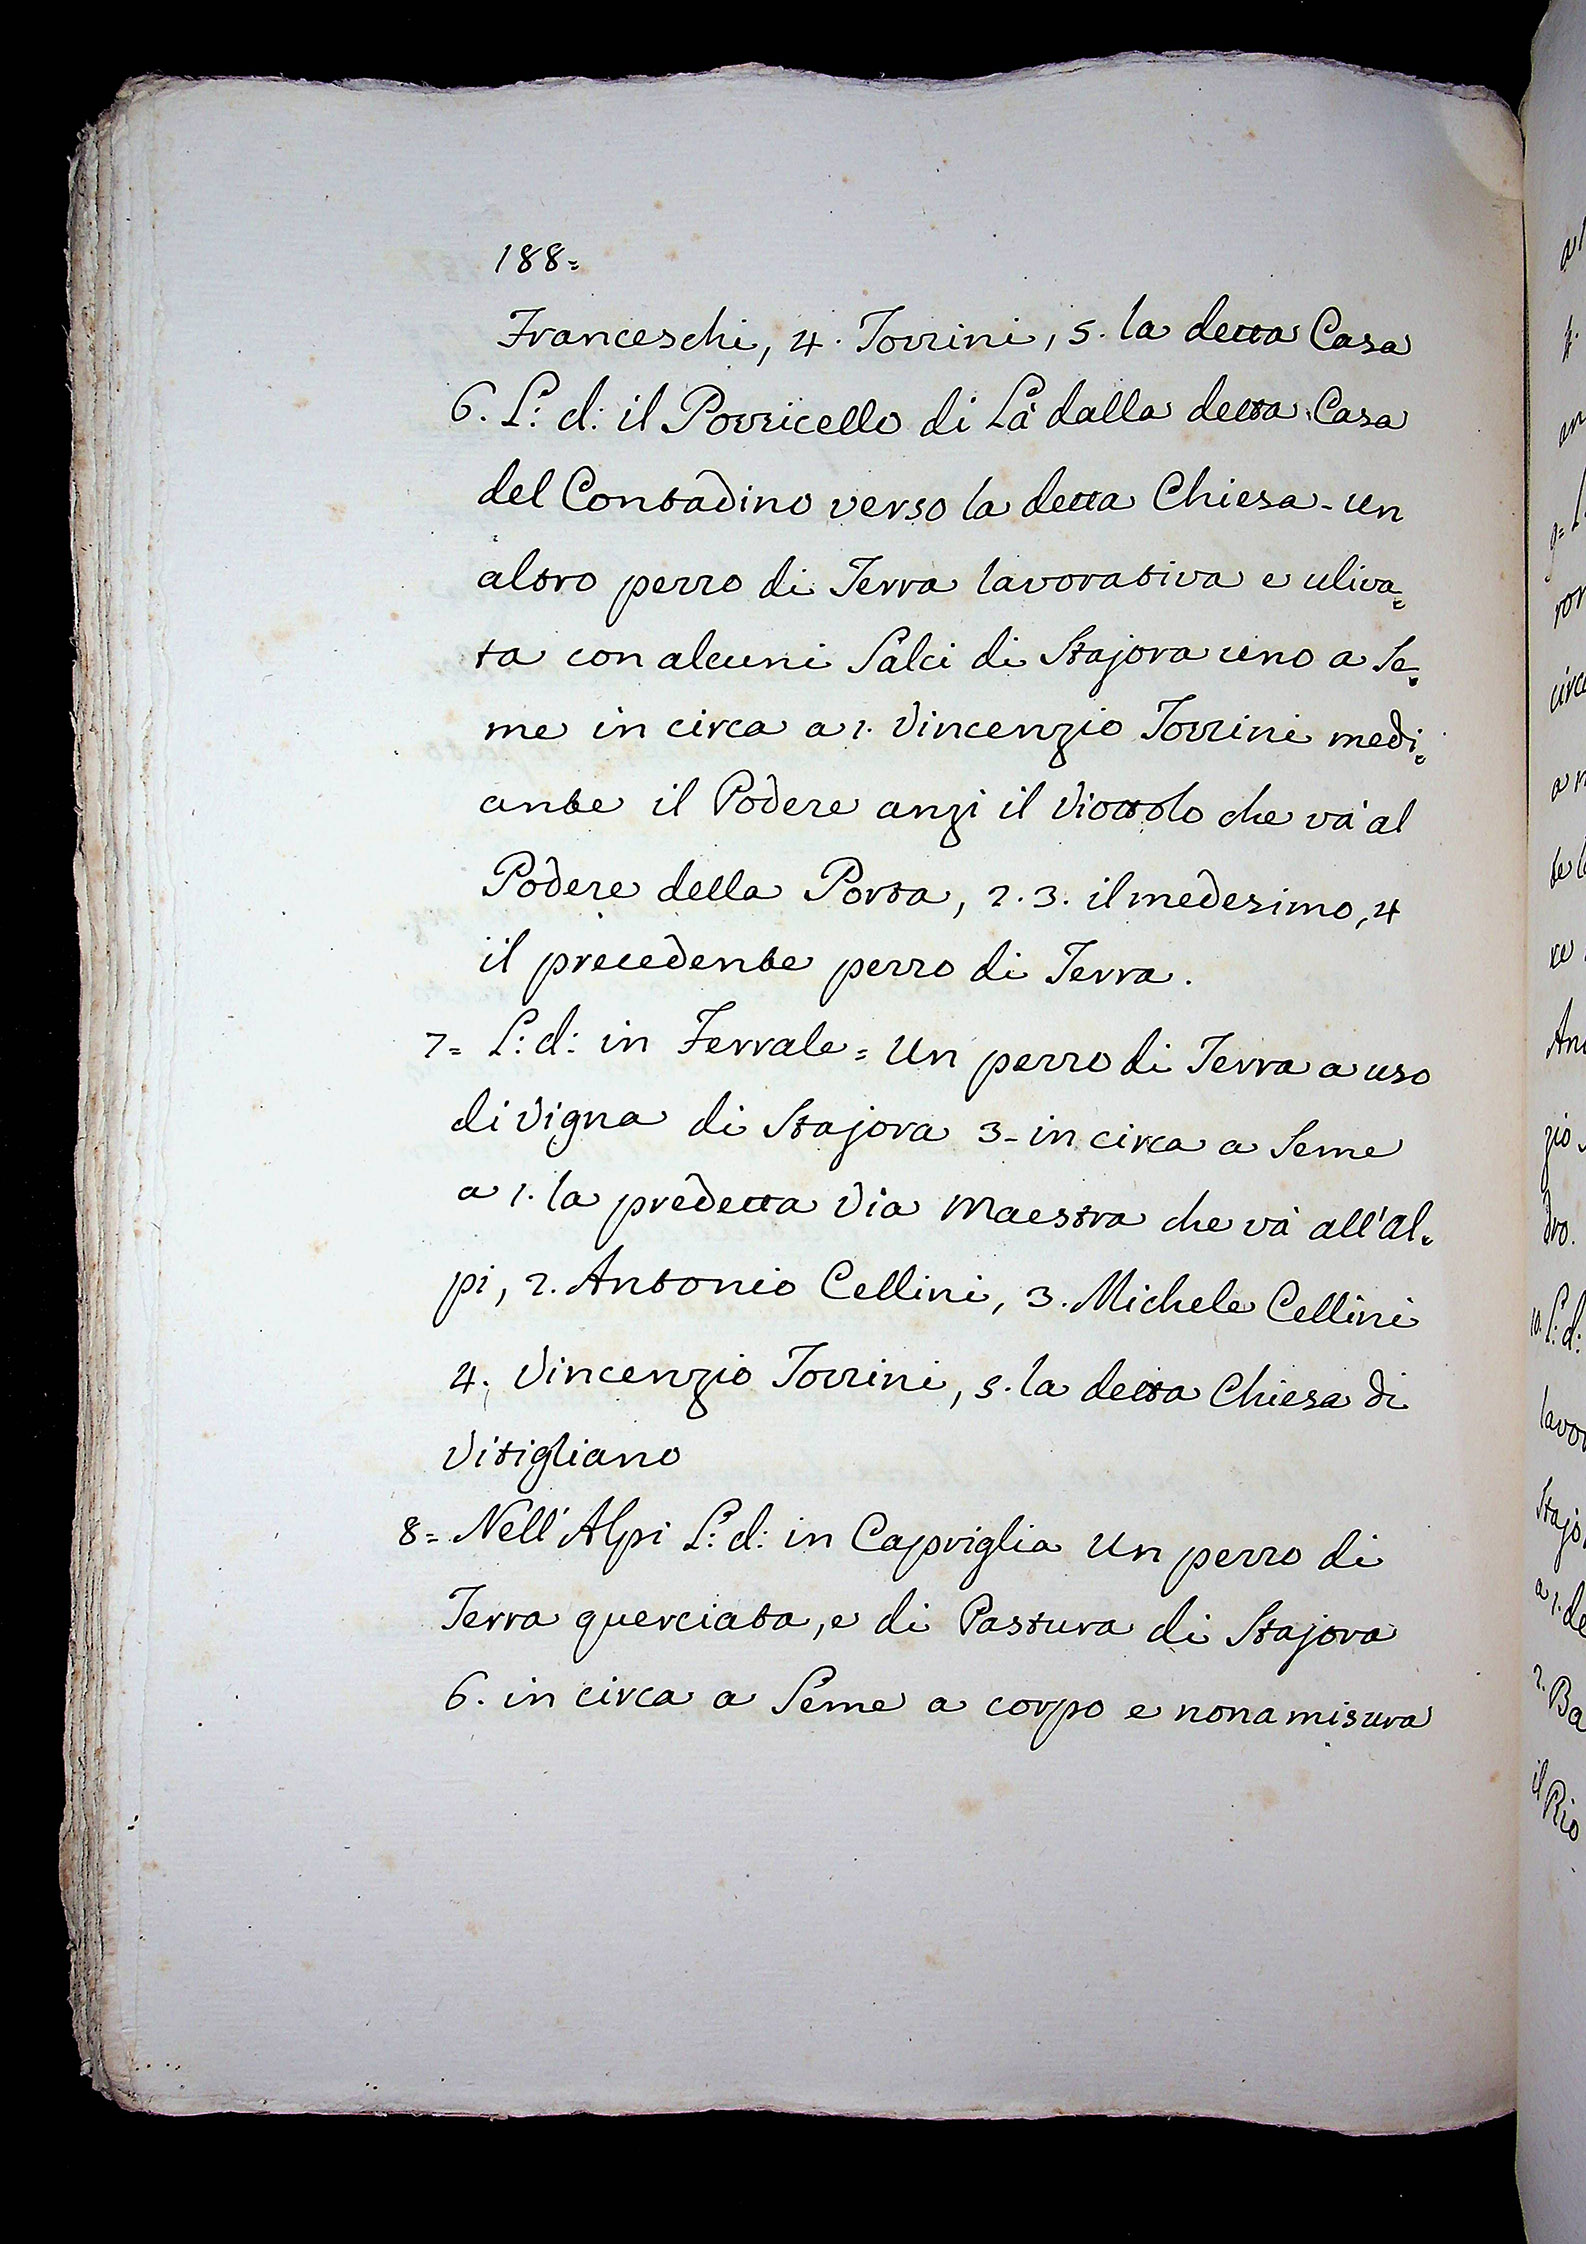 188=
Franceschi, 4. Torrini, 5. la detta Casa
6. L: d: il Porricello di Là dalla detta Casa
del Contadino verso la detta Chiesa - un
altro pezzo di Terra lavorativa e uliva=
ta con alcuni Salci di Stajora uno a Se=
me in circa a 1. Vincenzio Torrini medi=
ante il Podere anzi il Viottolo che và al
Podere della Porta, 2. 3. il medesimo, 4
il precedente pezzo di Terra.
7= L: d: in Ferrale = Un pezzo di Terra a uso
di Vigna di Stajora 3 - in circa a Seme
a 1. la predetta Via Maestra che và all'al=
pi, 2. Antonio Cellini, 3. Michele Cellini
4. Vincenzio Torrini, 5. la detta Chiesa di
Vitigliano
8= Nell'Alpi L: d: in Capriglia Un pezzo di
Terra querciata, e di Pastura di Stajora
6. in circa a Seme a corpo e non a misura